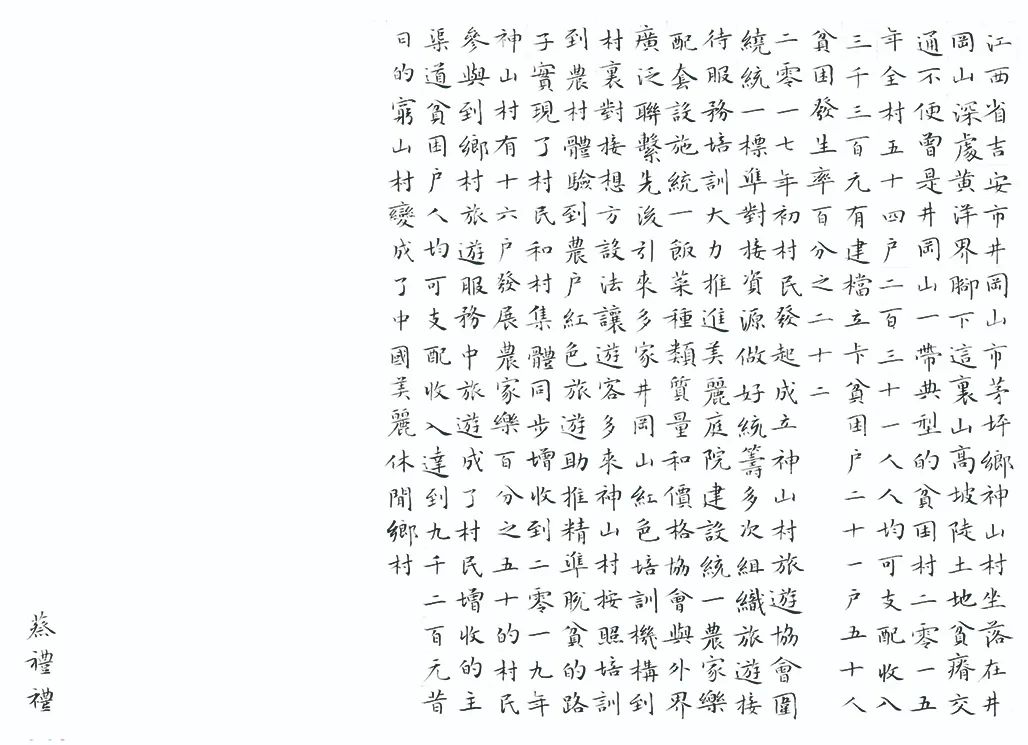 江西省吉安市井岡山市茅坪鄉神山村坐落在井
岡山深處黃洋界腳下這裏山高坡陡土地貧瘠交
通不便曾是井岡山一帶典型的貧困村二零一五
年全村五十四戶二百三十一人人均可支配收入
三千三百元有建檔立卡貧困戶二十一戶五十人
貧困發生率百分之二十二
二零一七年初村民發起成立神山村旅遊協會圍
繞統一標準對接資源做好統籌多次組織旅遊接
待服務培訓大力推進美麗庭院建設統一農家樂
配套設施統一飯菜種類質量和價格協會與外界
廣泛聯繫先後引來多家井岡山紅色培訓機構到
村裏對接想方設法讓遊客多來神山村按照培訓
到農村體驗到農戶紅色旅遊助推精準脫貧的路
子實現了村民和村集體同步增收到二零一九年
神山村有十六戶發展農家樂百分之五十的村民
參與到鄉村旅遊服務中旅遊成了村民增收的主
渠道貧困戶人均可支配收入達到九千二百元昔
日的窮山村變成了中國美麗休閒鄉村
蔡禮禮